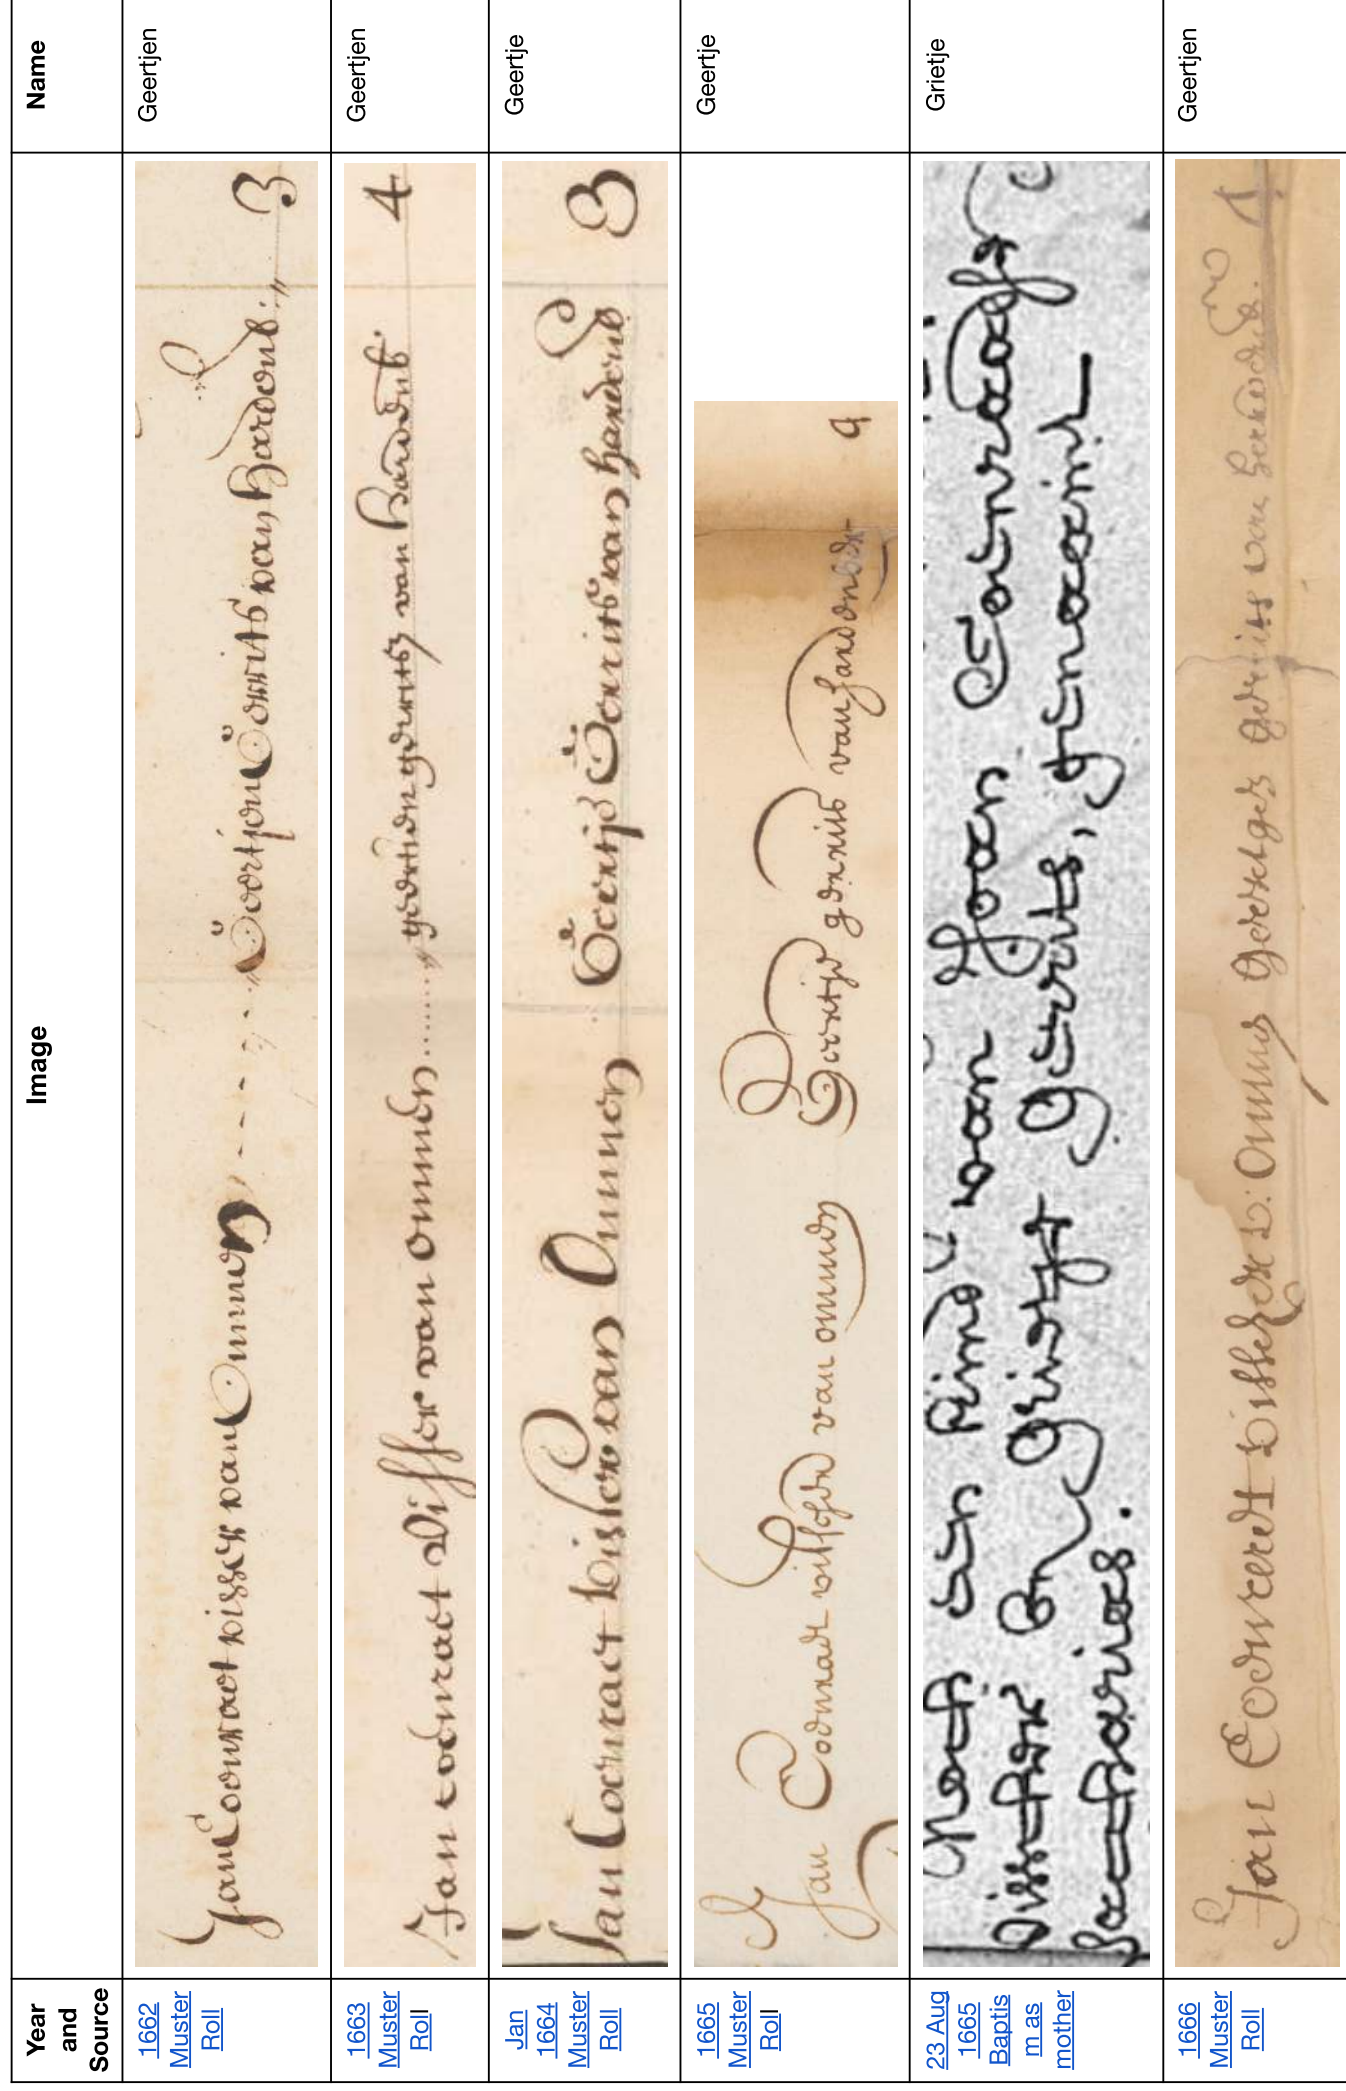 Year and Source	Image	Name
1662 Muster Roll	Jan Coonraet visser van Ommen Geertjen Gerrits van Harderwi: 3	Geertjen
1663 Muster Roll	Jan coenraet Visser van ommen geertien gerritsz van 4	Geertjen
Jan 1664 Muster Roll	Jan Coenraet visser van Ommen Geertje Gerrits van harderw 3	Geertje
1665 Muster Roll	Jan Coenraet van ommen Geertje gerrits van 4	Geertje
23 Aug 1665 Baptism as mother	Noch een kind van Joan Coenraads
Visscher En Grietje Geerrits, genaamt
Zacharias.	Grietje
1666 Muster Roll	Jan Coenraedt Visscher V: Ommen gerrits van	Geertjen